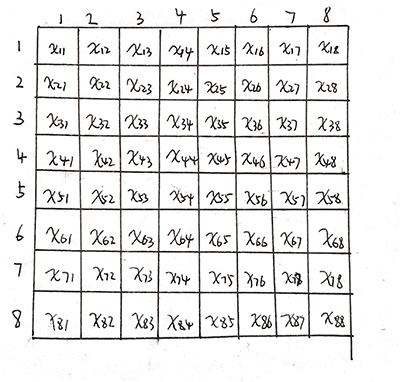 1 2 3 4 5 6 7 8
1 x11 x12 x13 x14 x15 x16 x17 x18
2 x21 x22 x23 x24 x25 x26 x27 x28
3 x31 x32 x33 x34 x35 x36 x37 x38
4 x41 x42 x43 x44 x45 x46 x47 x48
5 x51 x52 x53 x54 x55 x56 x57 x58
6 x61 x62 x63 x64 x65 x66 x67 x68
7 x71 x72 x73 x74 x75 x76 x78 x78
8 x81 x82 x83 x84 x85 x86 x87 x88